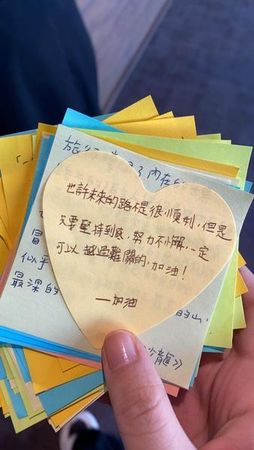 旅行
內在的
也許未來的路不是很順利,但是
只要堅持到底,努力不懈,一定
可以越過難關的,加油!
—加油
冒
似乎
最深的
的山,
沙龍》